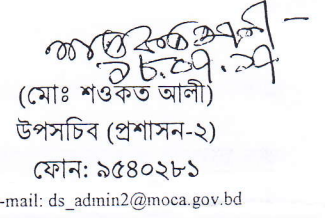 (মোঃ শওকত আলী)
উপসচিব (প্রশাসন-২)
ফোন: ৯৫৪০২৮১
-mail: ds_admin2@moca.gov.bd